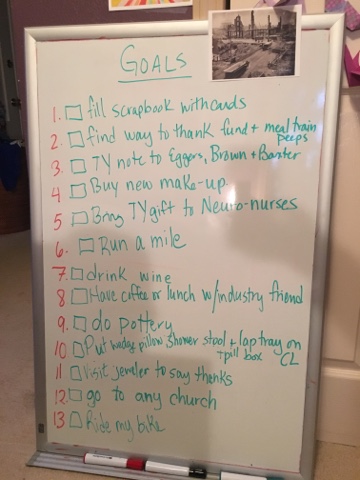 GOALS
1. fill scrapbook with cards
2. find way to thank fund + meal train
peeps
3. TY note to Eggers, Brown + Baxter
4 Buy new make-up
5 Bring TY gift to Neuro-nurses
6. Run a mile
7. drink wine
8 Have coffee or lunch w/industry friend
9. do pottery
10. Put wedge pillow, shower stool + lap tray on
+ pill box CL
11 Visit jeweler to say thanks
12. go to any church
13 Ride my bike